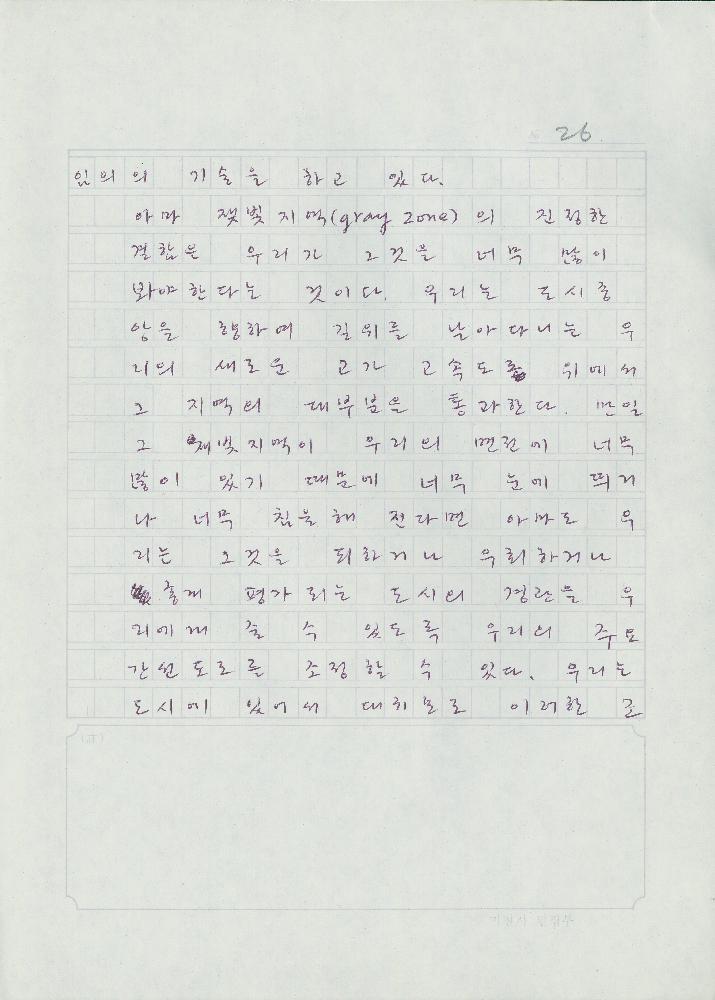 26
임의의 기술을 하고 있다.
아마 잿빛지역(gray zone)의 진정한
결함은 우리가 그것을 너무 많이
봐야한다는 것이다. 우리는 도시중
앙을 향하여 길위를 날아다니는 우
리의 새로운 고가 고속도로 위에서
그 지역의 대부분을 통과한다. 만일
그 재빛지역이 우리의 면전에 너무
많이 있기 때문에 너무 눈에 띄거
나 너무 침울해 진다면 아마도 우
리는 그것을 피하거나 우회하거나
좋게 평가되는 도시의 경관을 우
리에게 줄 수 있도록 우리의 주요
간선도로를 조정할 수 있다. 우리는
도시에 있어서 대치물로 이러한 조